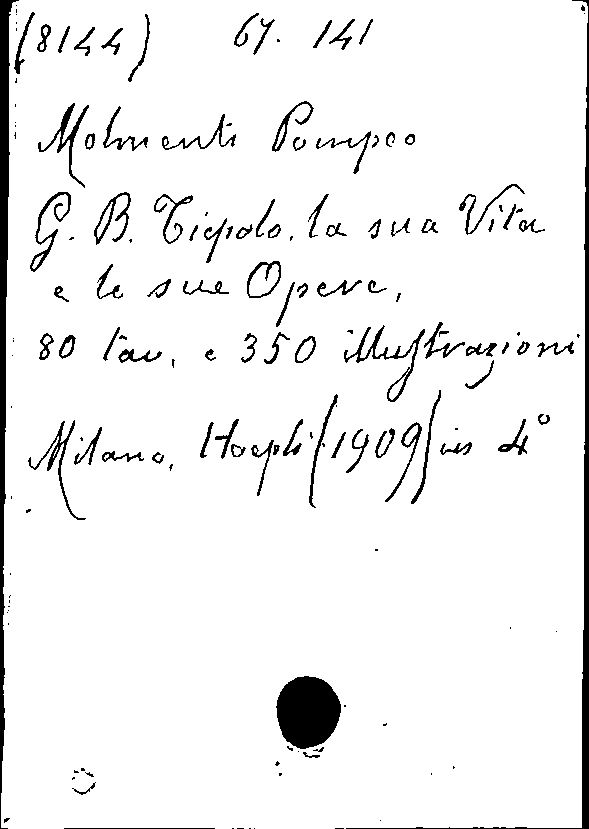 (8144) 67. 141
Molmenti Pompeo
G. B. Tiepolo. la sua Vita
e le sue Opere,
80 tav. e 350 illustrazioni
Milano, Hoepli (1909) in 4°